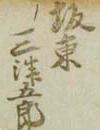 坂東
三津五郎